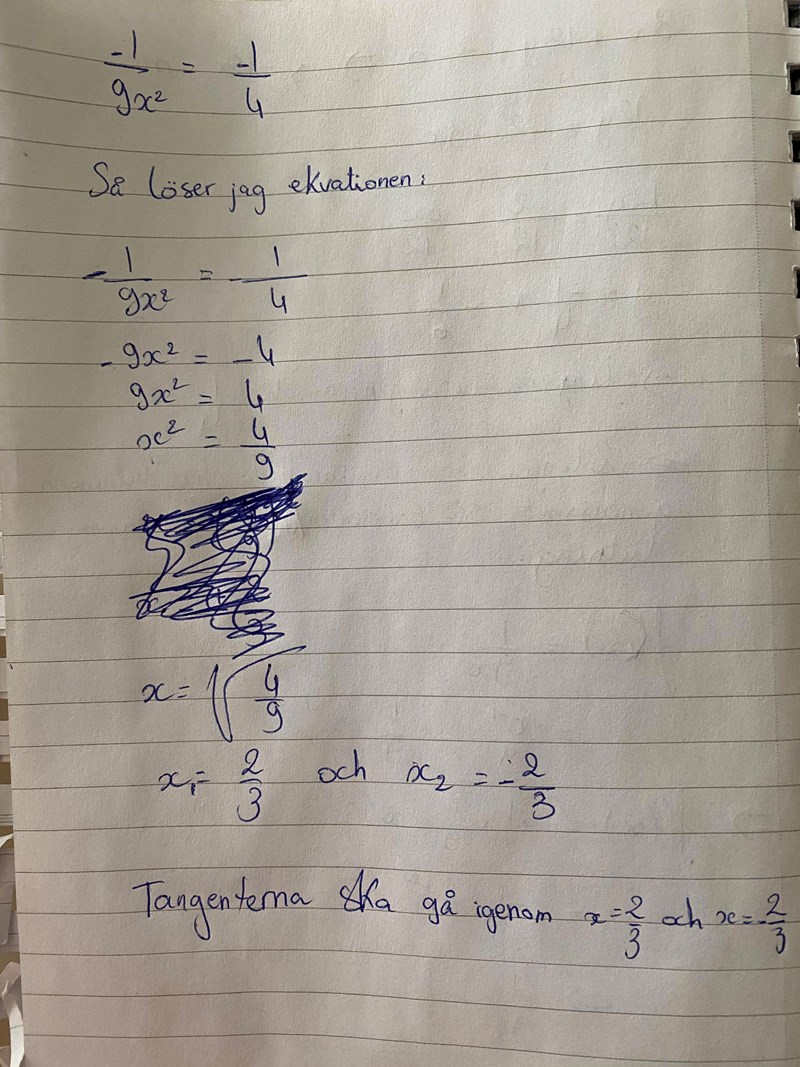 -1/9x² = -1/4
Så löser jag ekvationen:
-1/9x² = -1/4
-9x² = -4
9x² = 4
x² = 4/9
x = √(4/9)
x₁ = 2/3 och x₂ = -2/3
Tangenterna ska gå igenom x = 2/3 och x = -2/3